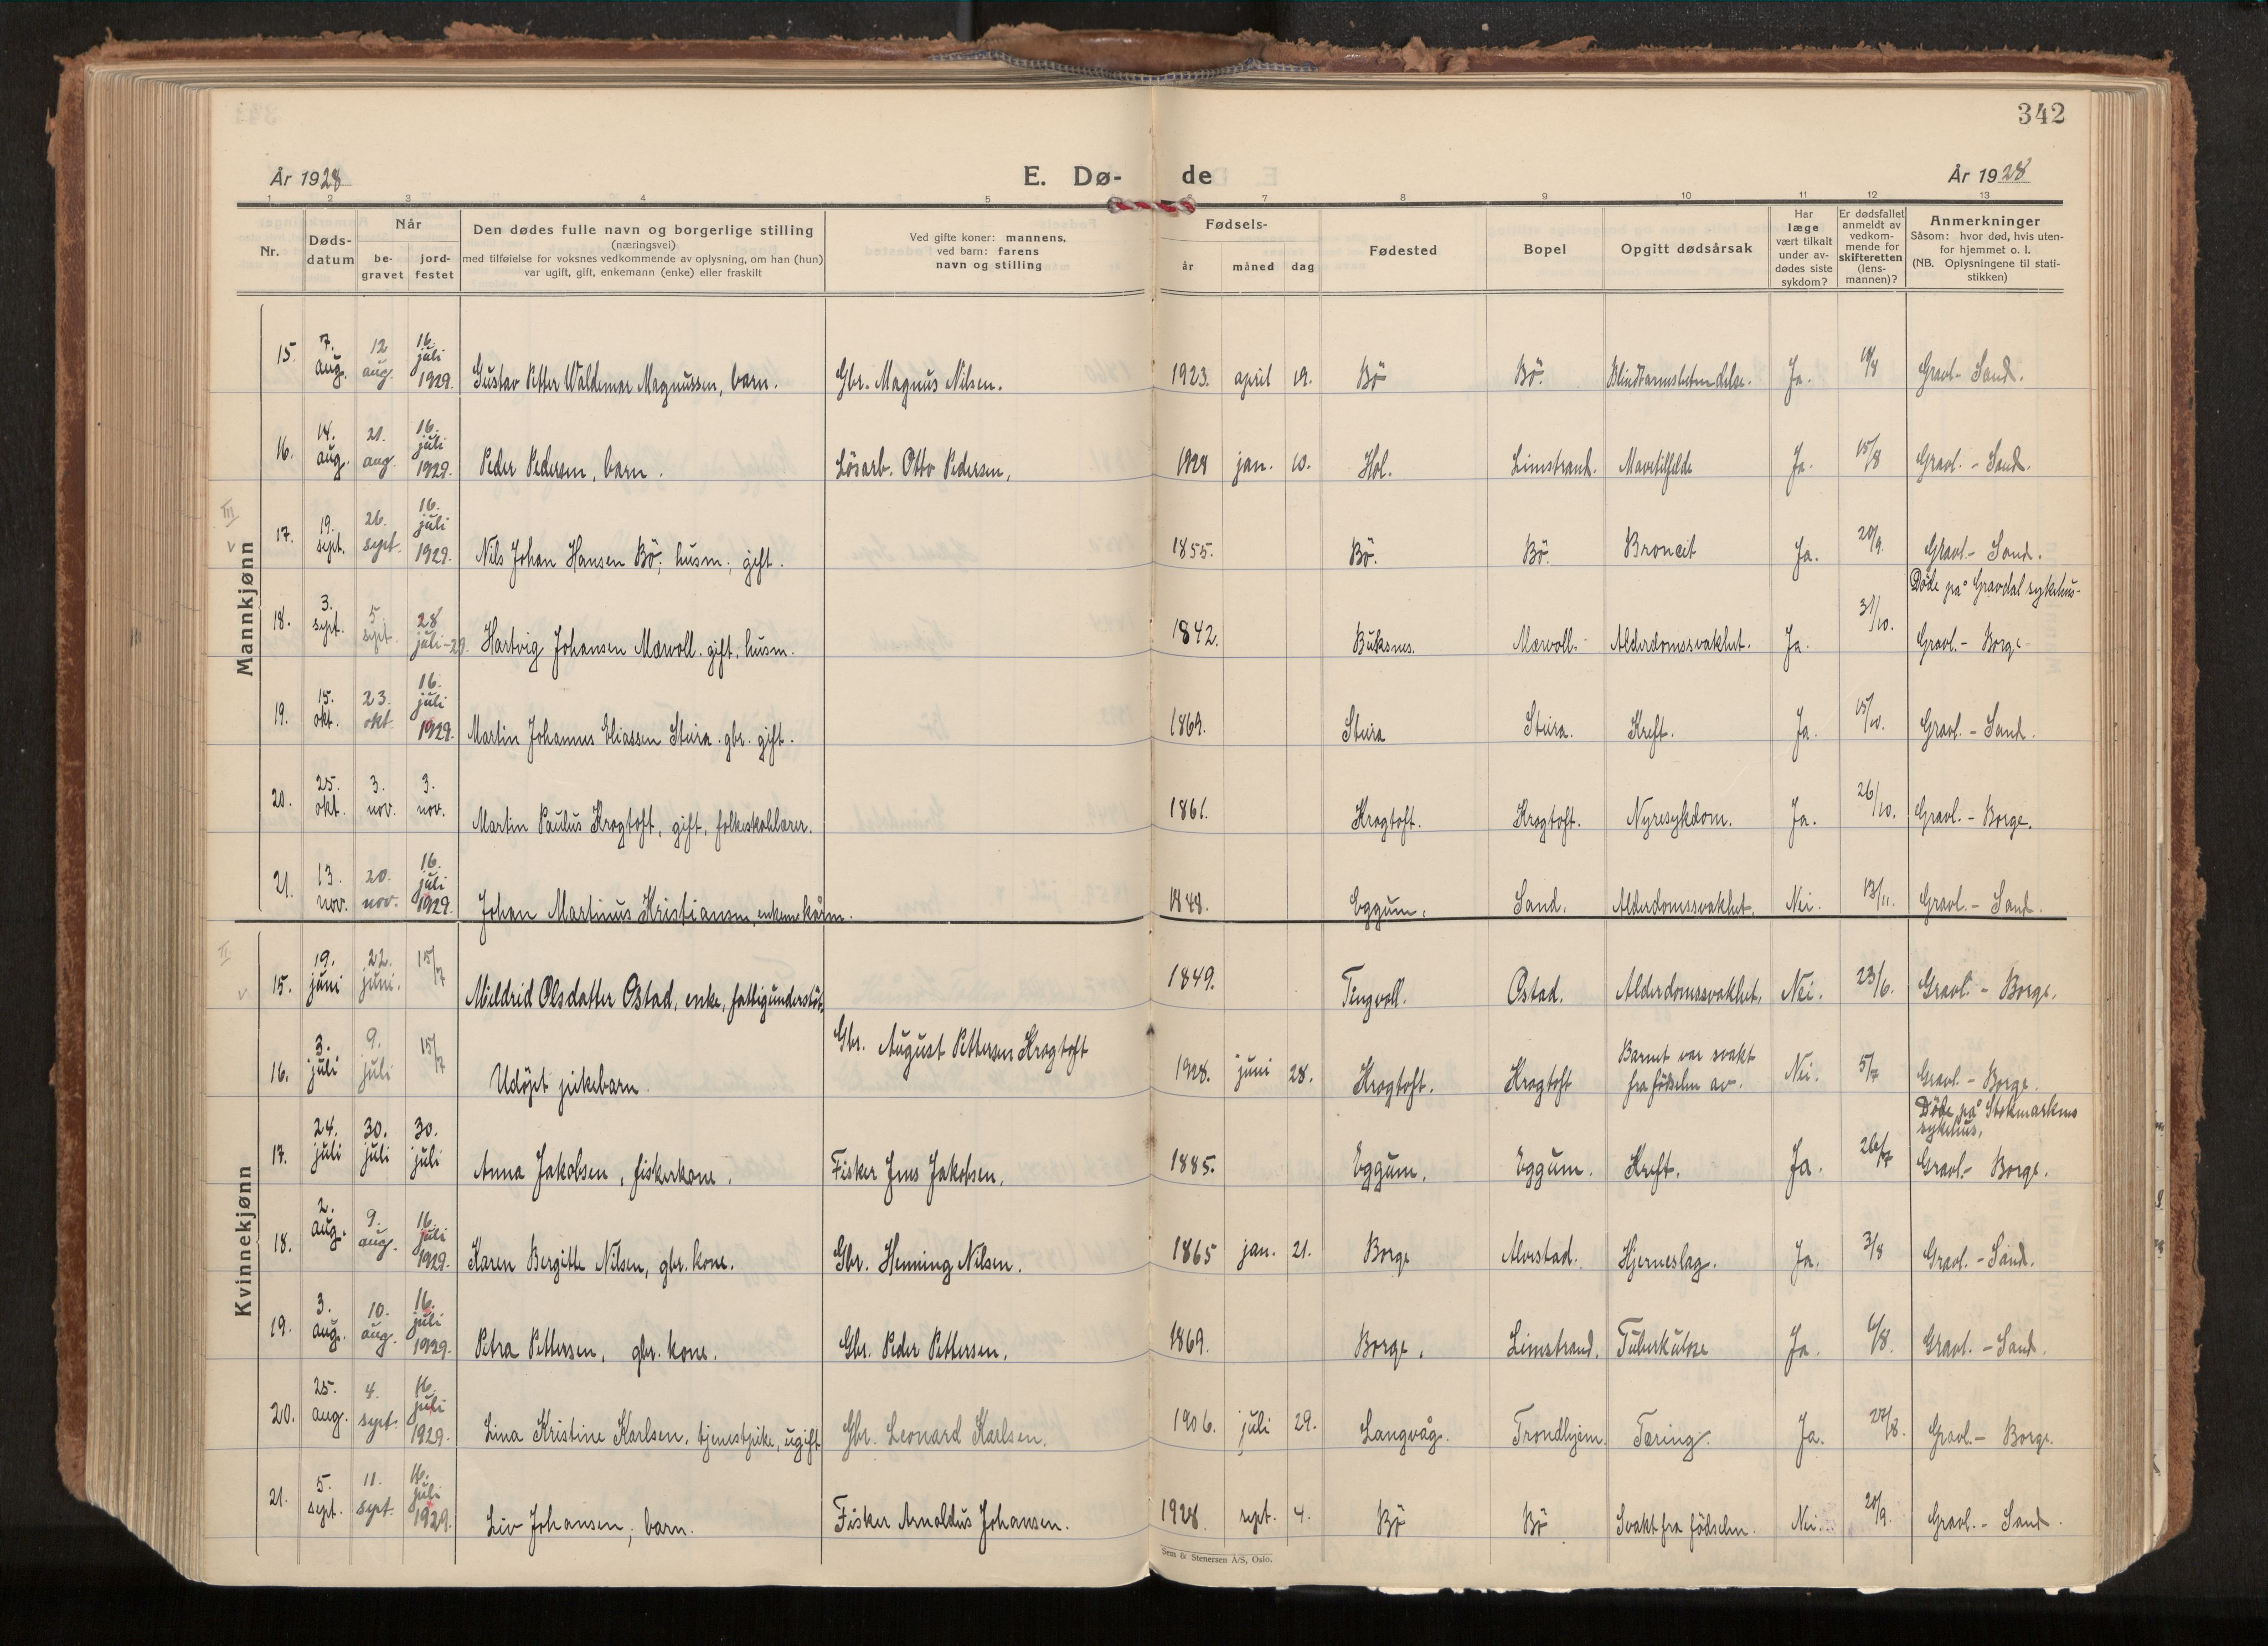 342
År 1928 E. Dø- de År 1928
1 2 3 4 5 6 7 8 9 10 11 12 13
Nr. Døds-datum Når be-gravet jord-festet Den dødes fulle navn og borgerlige stilling (næringsvei) med tilføielse for voksnes vedkommende av oplysning, om han (hun) var ugift, gift, enkemann (enke) eller fraskilt Ved gifte koner: mannens, ved barn: farens navn og stilling Fødsels- år måned dag Fødested Bopel Opgitt dødsårsak Har læge vært tilkalt under av-dødes siste sykdom? Er dødsfallet anmeldt av vedkom-mende for skifteretten (lens-mannen)? Anmerkninger Såsom: hvor død, hvis uten-for hjemmet o. l. (NB. Oplysningene til stati-stikken)
Mannkjønn
15. 7. aug. 12 aug. 16. juli 1929. Gustav Petter Waldemar Magnussen, barn. Gbr. Magnus Nilsen. 1923. april 19. Bö Bö. Blindtarmsbetendelse. Ja. 10/8 Gravl. - Sand.
16. 14. aug. 21. aug. 16. juli 1929. Peder Pedersen, barn. Lösarb. Otto Pedersen, 1928 jan. 10. Hol. Limstrand. Mavetilfelde Ja. 15/8 Gravl. - Sand.
III v
17. 19. sept. 26. sept. 16. juli 1929. Nils Johan Hansen Bö, husm, gift. 1855. Bö. Bö. Broncit Ja. 20/9. Gravl. - Sand.
18. 3. sept. 5 sept. 28 juli-29. Hartvig Johansen Mærvoll. gift, husm. 1842. Buksnes. Mærvoll. Alderdomssvakhet. Ja. 31/10. Döde på Gravdal sykehus- Gravl. - Borge
19. 15. okt. 23. okt. 16. juli 1929. Martin Johannes Eliassen Stura. gbr. gift. 1869. Stura Stura. Kreft. Ja. 15/10. Gravl. - Sand.
20. 25. okt. 3. nov. 3. nov. Martin Paulus Krogtoft, gift, folkeskolelærer. 1861. Krogtoft. Krogtoft. Nyresykdom. Ja. 26/10. Gravl. - Borge.
21. 13. nov. 20. nov. 16. juli 1929. Johan Martinus Kristiansen, enkemann kårm. 1848. Eggum, Sand. Alderdomssvakhet. Nei. 13/11. Gravl. - Sand.
Kvinnekjønn
II v
15. 19. juni 22. juni. 15/7 Mildrid Olsdatter Ostad, enke, fattigunderstöt. 1849. Tingvoll. Ostad. Alderdomssvakhet. Nei. 23/6. Gravl. - Borge.
16. 3. juli 9. juli 15/7 Udöpt pikebarn. Gbr. August Pettersen Krogtoft 1928. juni 28. Krogtoft. Krogtoft Barnet var svakt fra födselen av. Nei. 5/7 Gravl. - Borge.
17. 24. juli 30. juli 30. juli Anna Jakobsen, fiskerkone. Fisker Jens Jakobsen, 1885. Eggum, Eggum. Kreft. Ja. 26/7 Döde på Stokmarknes sykehus, Gravl. - Borge.
18. 2. aug. 9. aug. 16. juli 1929. Karen Bergitte Nilsen, gbr. kone. Gbr. Henning Nilsen. 1865 jan. 21. Borge Alvestad. Hjerneslag. Ja. 3/8 Gravl. - Sand.
19. 3. aug. 10. aug. 16. juli 1929. Petra Pettersen, gbr. kone. Gbr. Peder Pettersen, 1869. Borge, Limstrand. Tuberkulose Ja. 6/8. Gravl. - Sand.
20. 25. aug. 4. sept. 16. juli 1929. Lina Kristine Karlsen, tjenestpike, ugift Gbr. Leonard Karlsen. 1906. juli 29. Langvåg. Trondhjem. Tæring. Ja. 27/8. Gravl. - Borge.
21. 5. sept. 11. sept. 16. juli 1929. Liv Johansen, barn. Fisker Arnoldus Johansen. 1928. sept. 4. Bö Bö Svakt fra födselen. Nei. 20/9. Gravl. - Sand.
Sem & Stenersen A/S, Oslo.